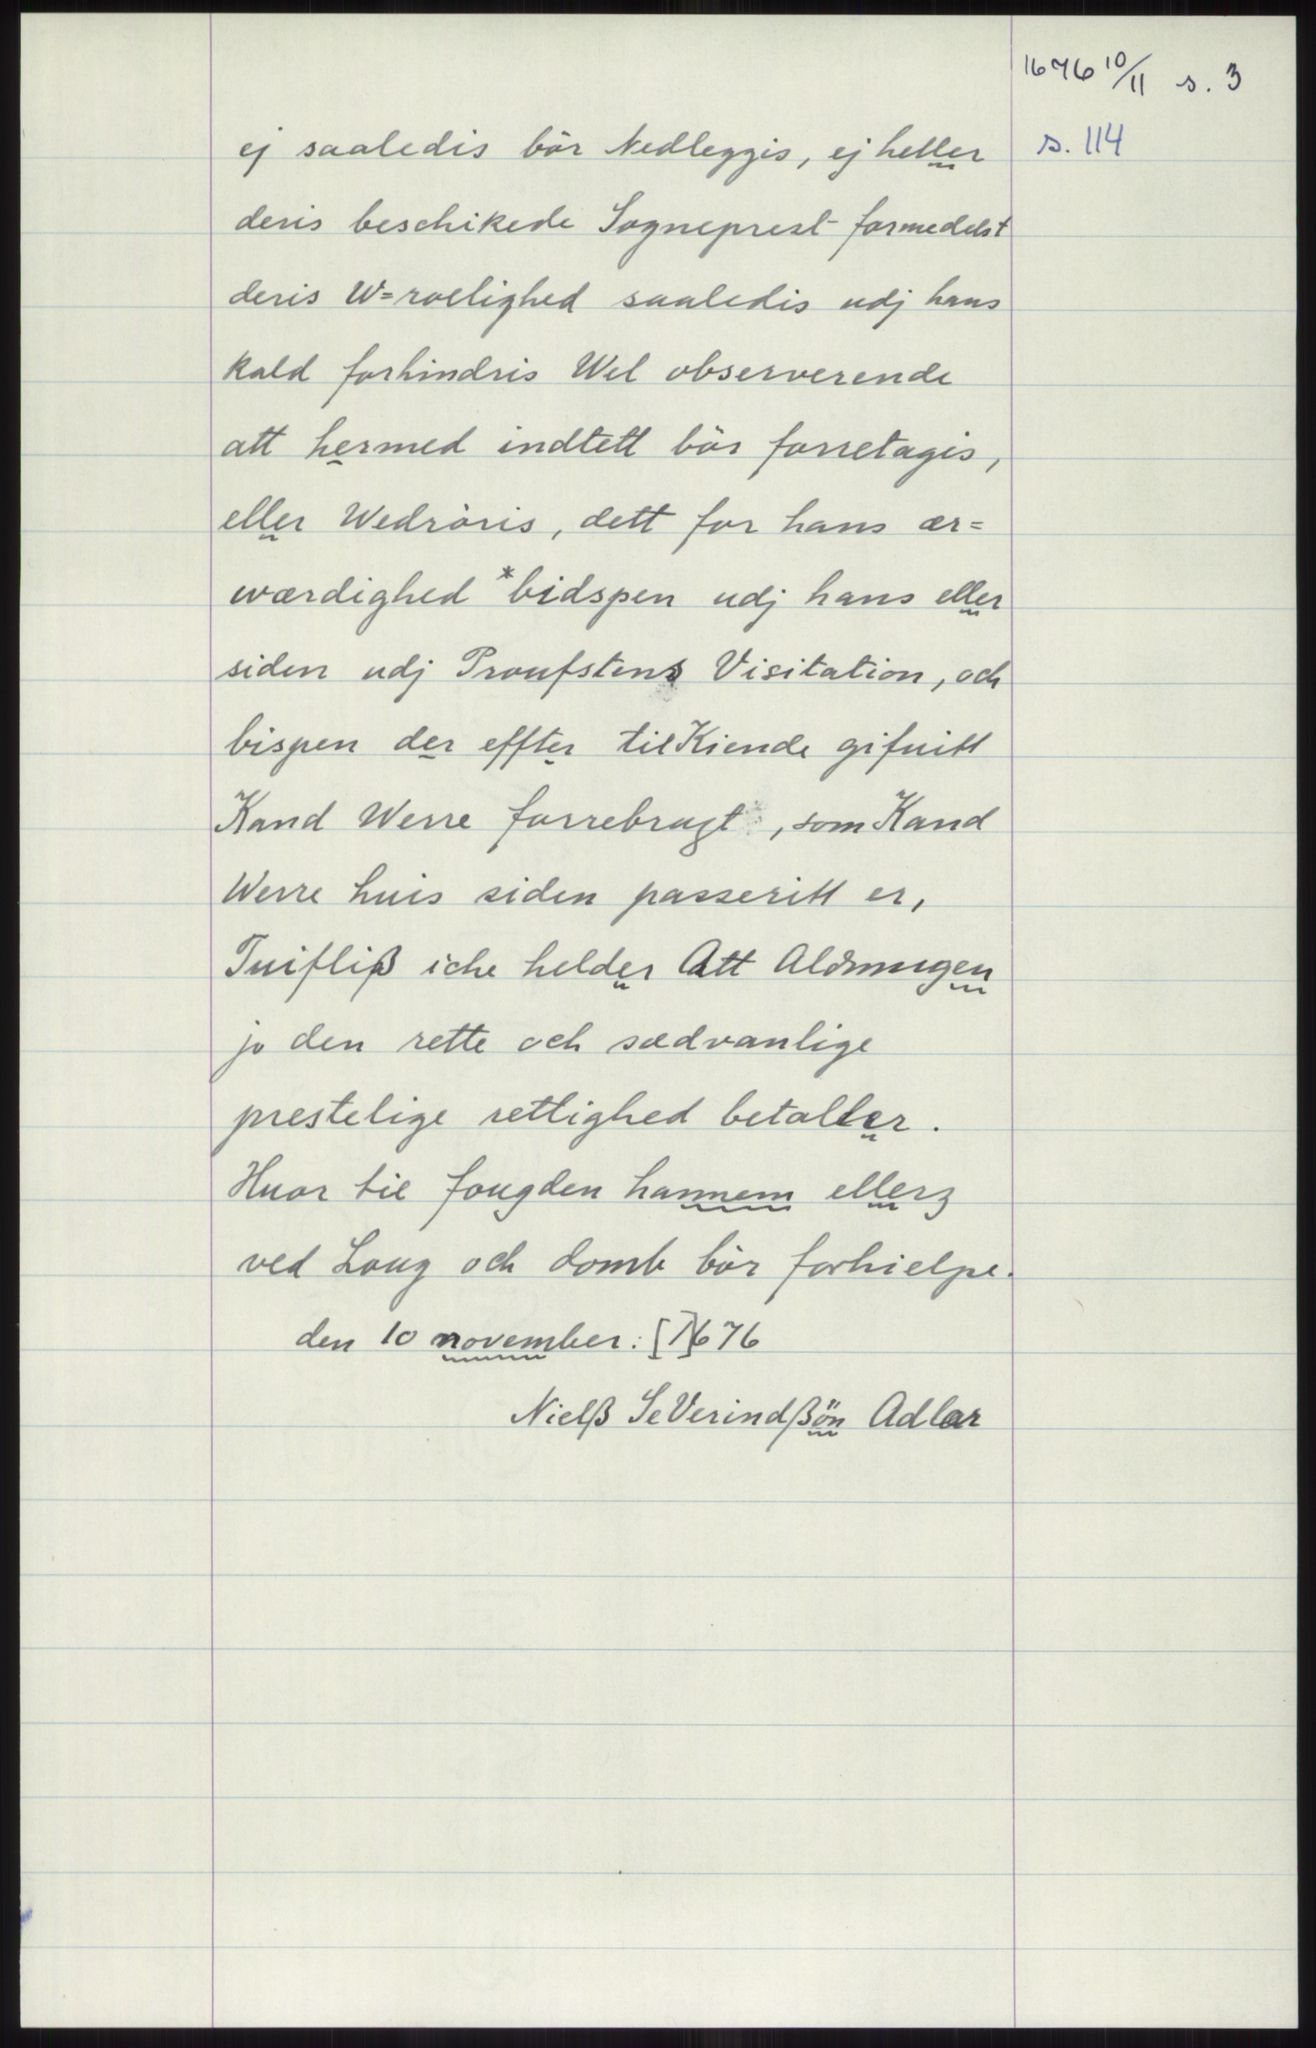 1676 10/11 s. 3
s. 114
ej saaledis bör Nedleggis, ej heller
deris beschikede Sogneprest formedelst
deris W=roelighed saaledis udj hans
kald forhindris Wel observerende
att hermed indtett bör forretagis,
eller Wedröris, dett for hans ær=
wærdighed *bidspen udj hans eller
siden udj Proufstens Visitation, och
bispen der effter tilKiende gifuitt
Kand Werre forrebragt, som Kand
Werre huis siden passeritt er,
Tuifliß iche helder Att Aldmugen
jo den rette och sædvanlige
prestelige rettighed betaller.
Huor til fougden hannem ellerz
ved Loug och domb bör forhielpe.
den 10 november: [1]676
Nielß SeVerindßön Adler